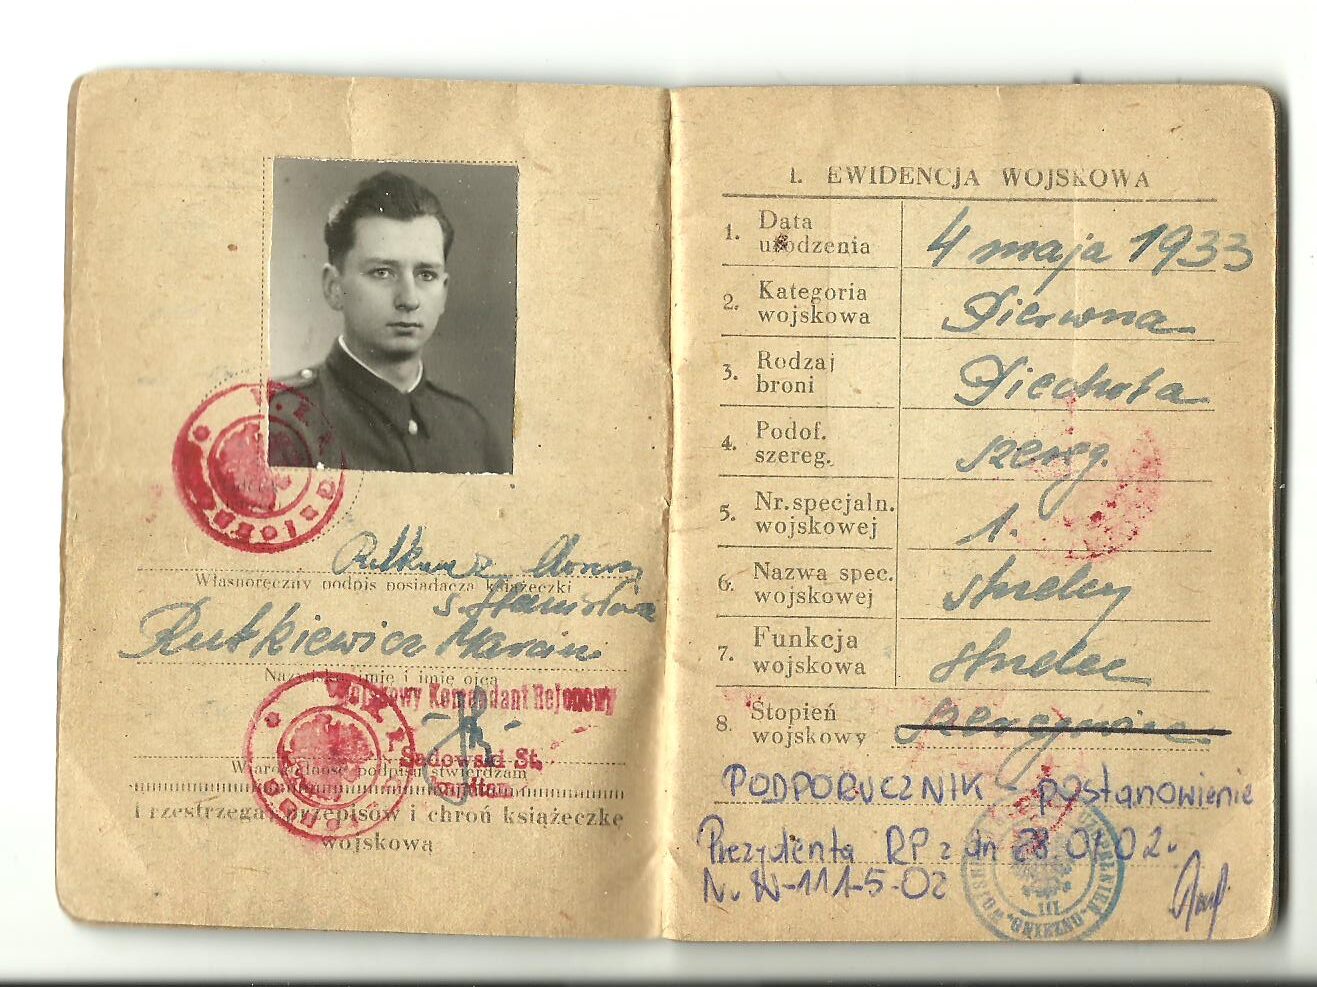 Rutkiewicz Marcin
Własnoręczny podpis posiadacza książeczki
s. Stanisława
Rutkiewicz Marcin
Nazwisko, imię i imię ojca
Wojskowy Komendant Rejonowy
Sadowski St.
kapitan
Wiarogodność podpisu stwierdzam
Przestrzegaj przepisów i chroń książeczkę
wojskową
1. EWIDENCJA WOJSKOWA
1. Data urodzenia 4 maja 1933
2. Kategoria wojskowa Pierwsza
3. Rodzaj broni Piechota
4. Podof. szereg. szereg.
5. Nr. specjaln. wojskowej 1.
6. Nazwa spec. wojskowej strzelcy
7. Funkcja wojskowa strzelec
8. Stopień wojskowy szeregowiec
PODPORUCZNIK - postanowienie
Prezydenta RP z dn 28.01.02 r
Nr W-111-5-02
III